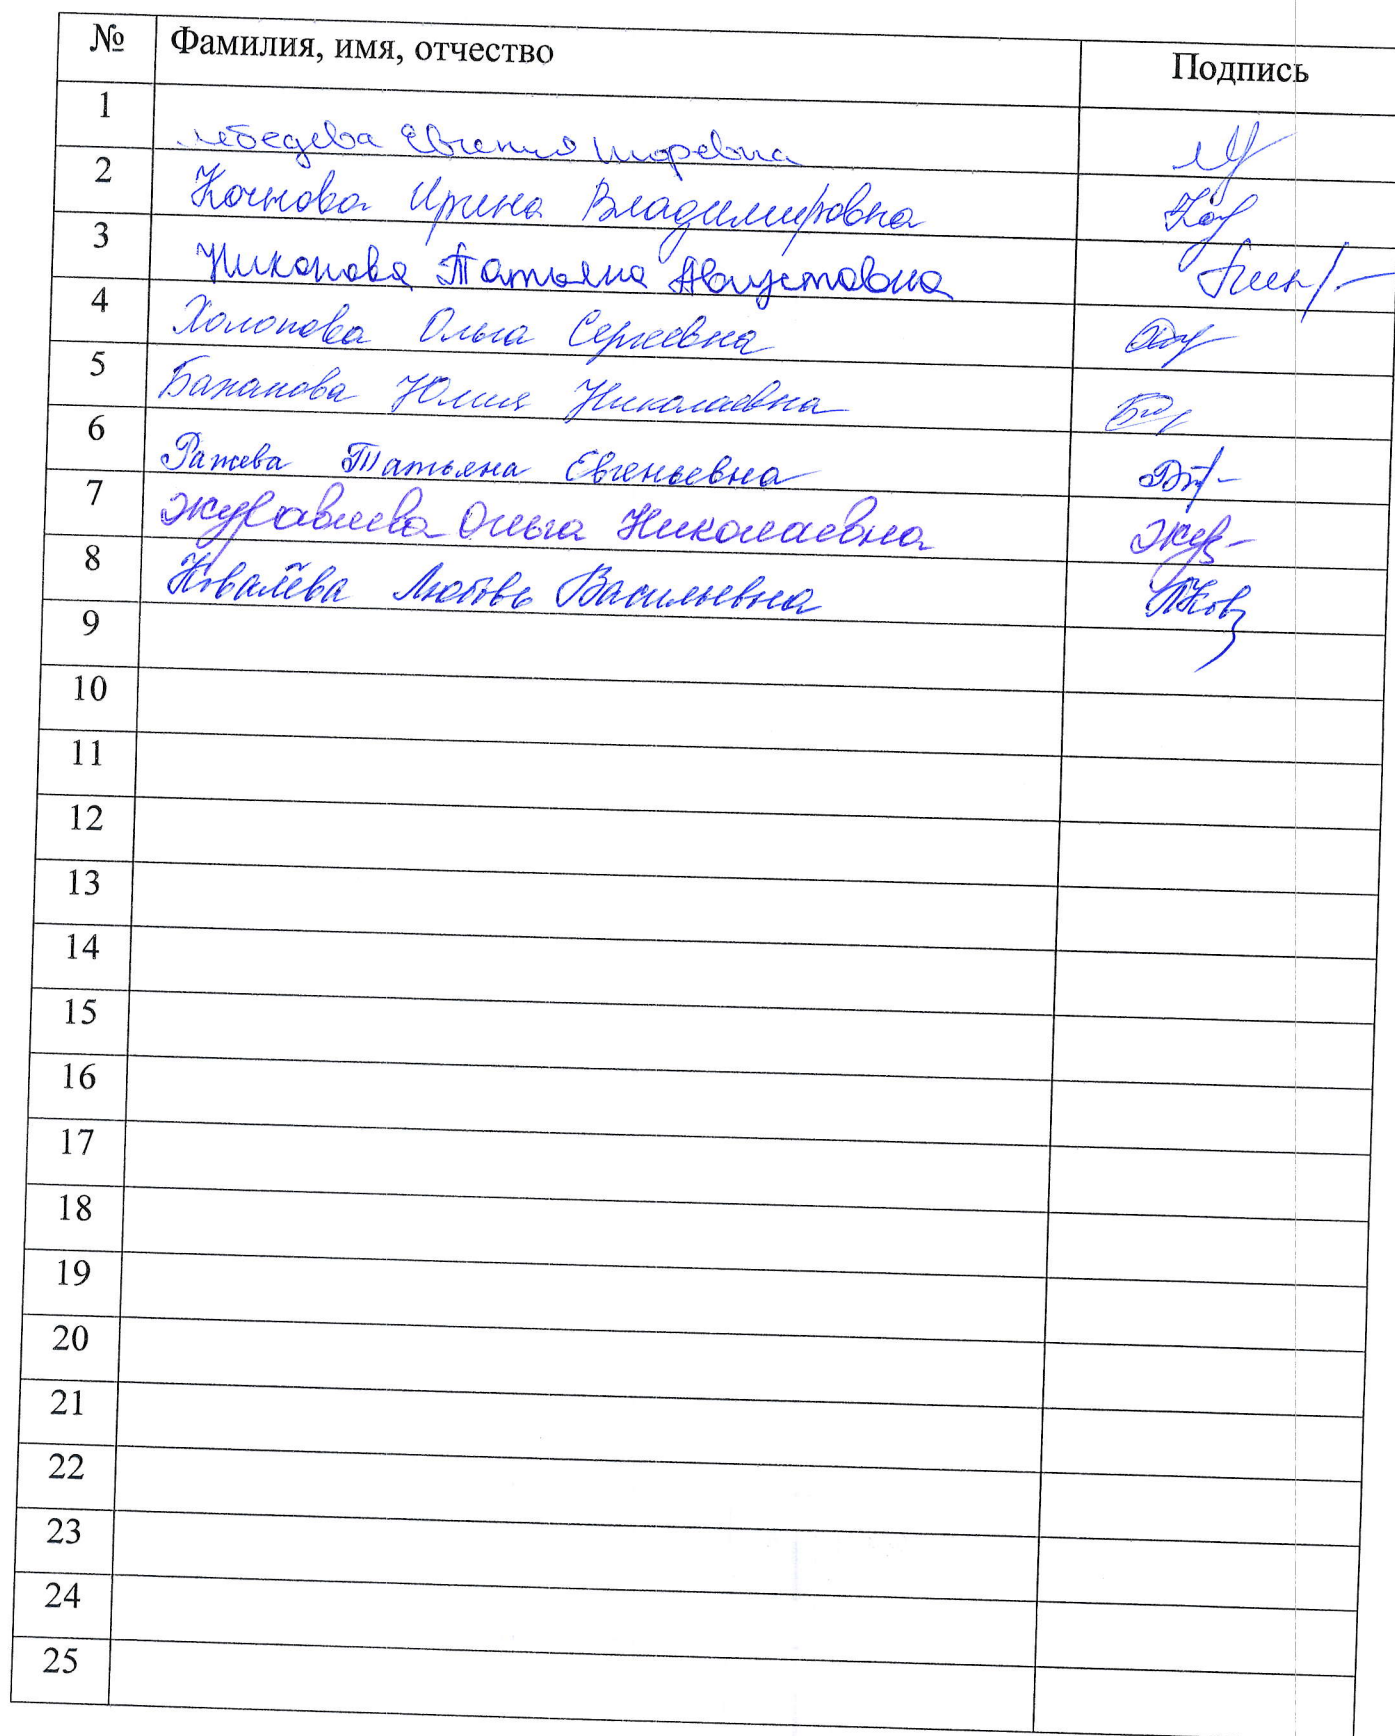 № Фамилия, имя, отчество Подпись
1 Лебедева Евгения Игоревна
2 Кочнова Ирина Владимировна
3 Никонова Татьяна Августовна
4 Холопова Ольга Сергеевна
5 Юлия Николаевна
6 Татьяна Евгеньевна
7 Журавлева Ольга Николаевна
8 Ковалёва Любовь Васильевна
9
10
11
12
13
14
15
16
17
18
19
20
21
22
23
24
25